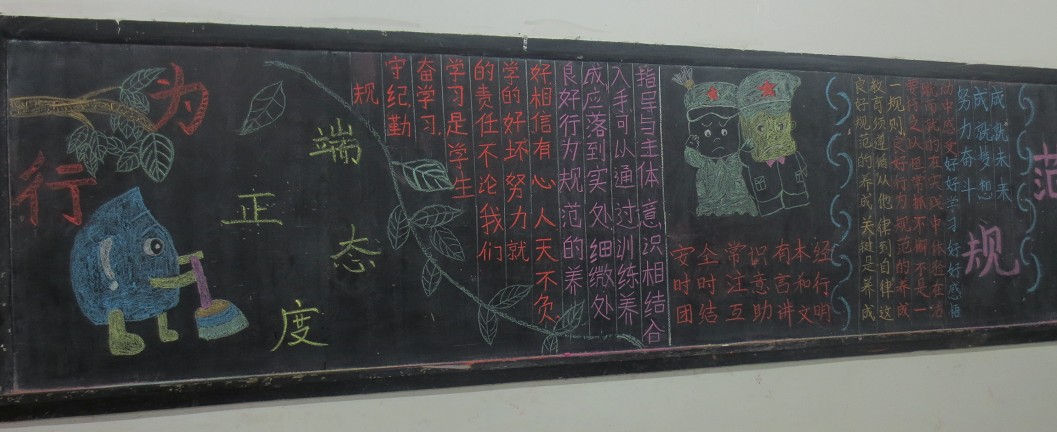 范
规
为
行
端
正
态
度
成就未来
成就梦想
努力奋斗
好好学习 好好感悟
一规则
教育须遵循从他律到自律这
良好规范的养成关键是养成
安全常识有木经
时时注意高和行
团结互助讲文明
指导与主体意识相结合
入手可以通过训练养
成应落到实处细微处
良好行为规范的养
好相信有心人天不负
学的好坏努力就
的责任不论我们
学习是学生
奋学习
守纪勤
规